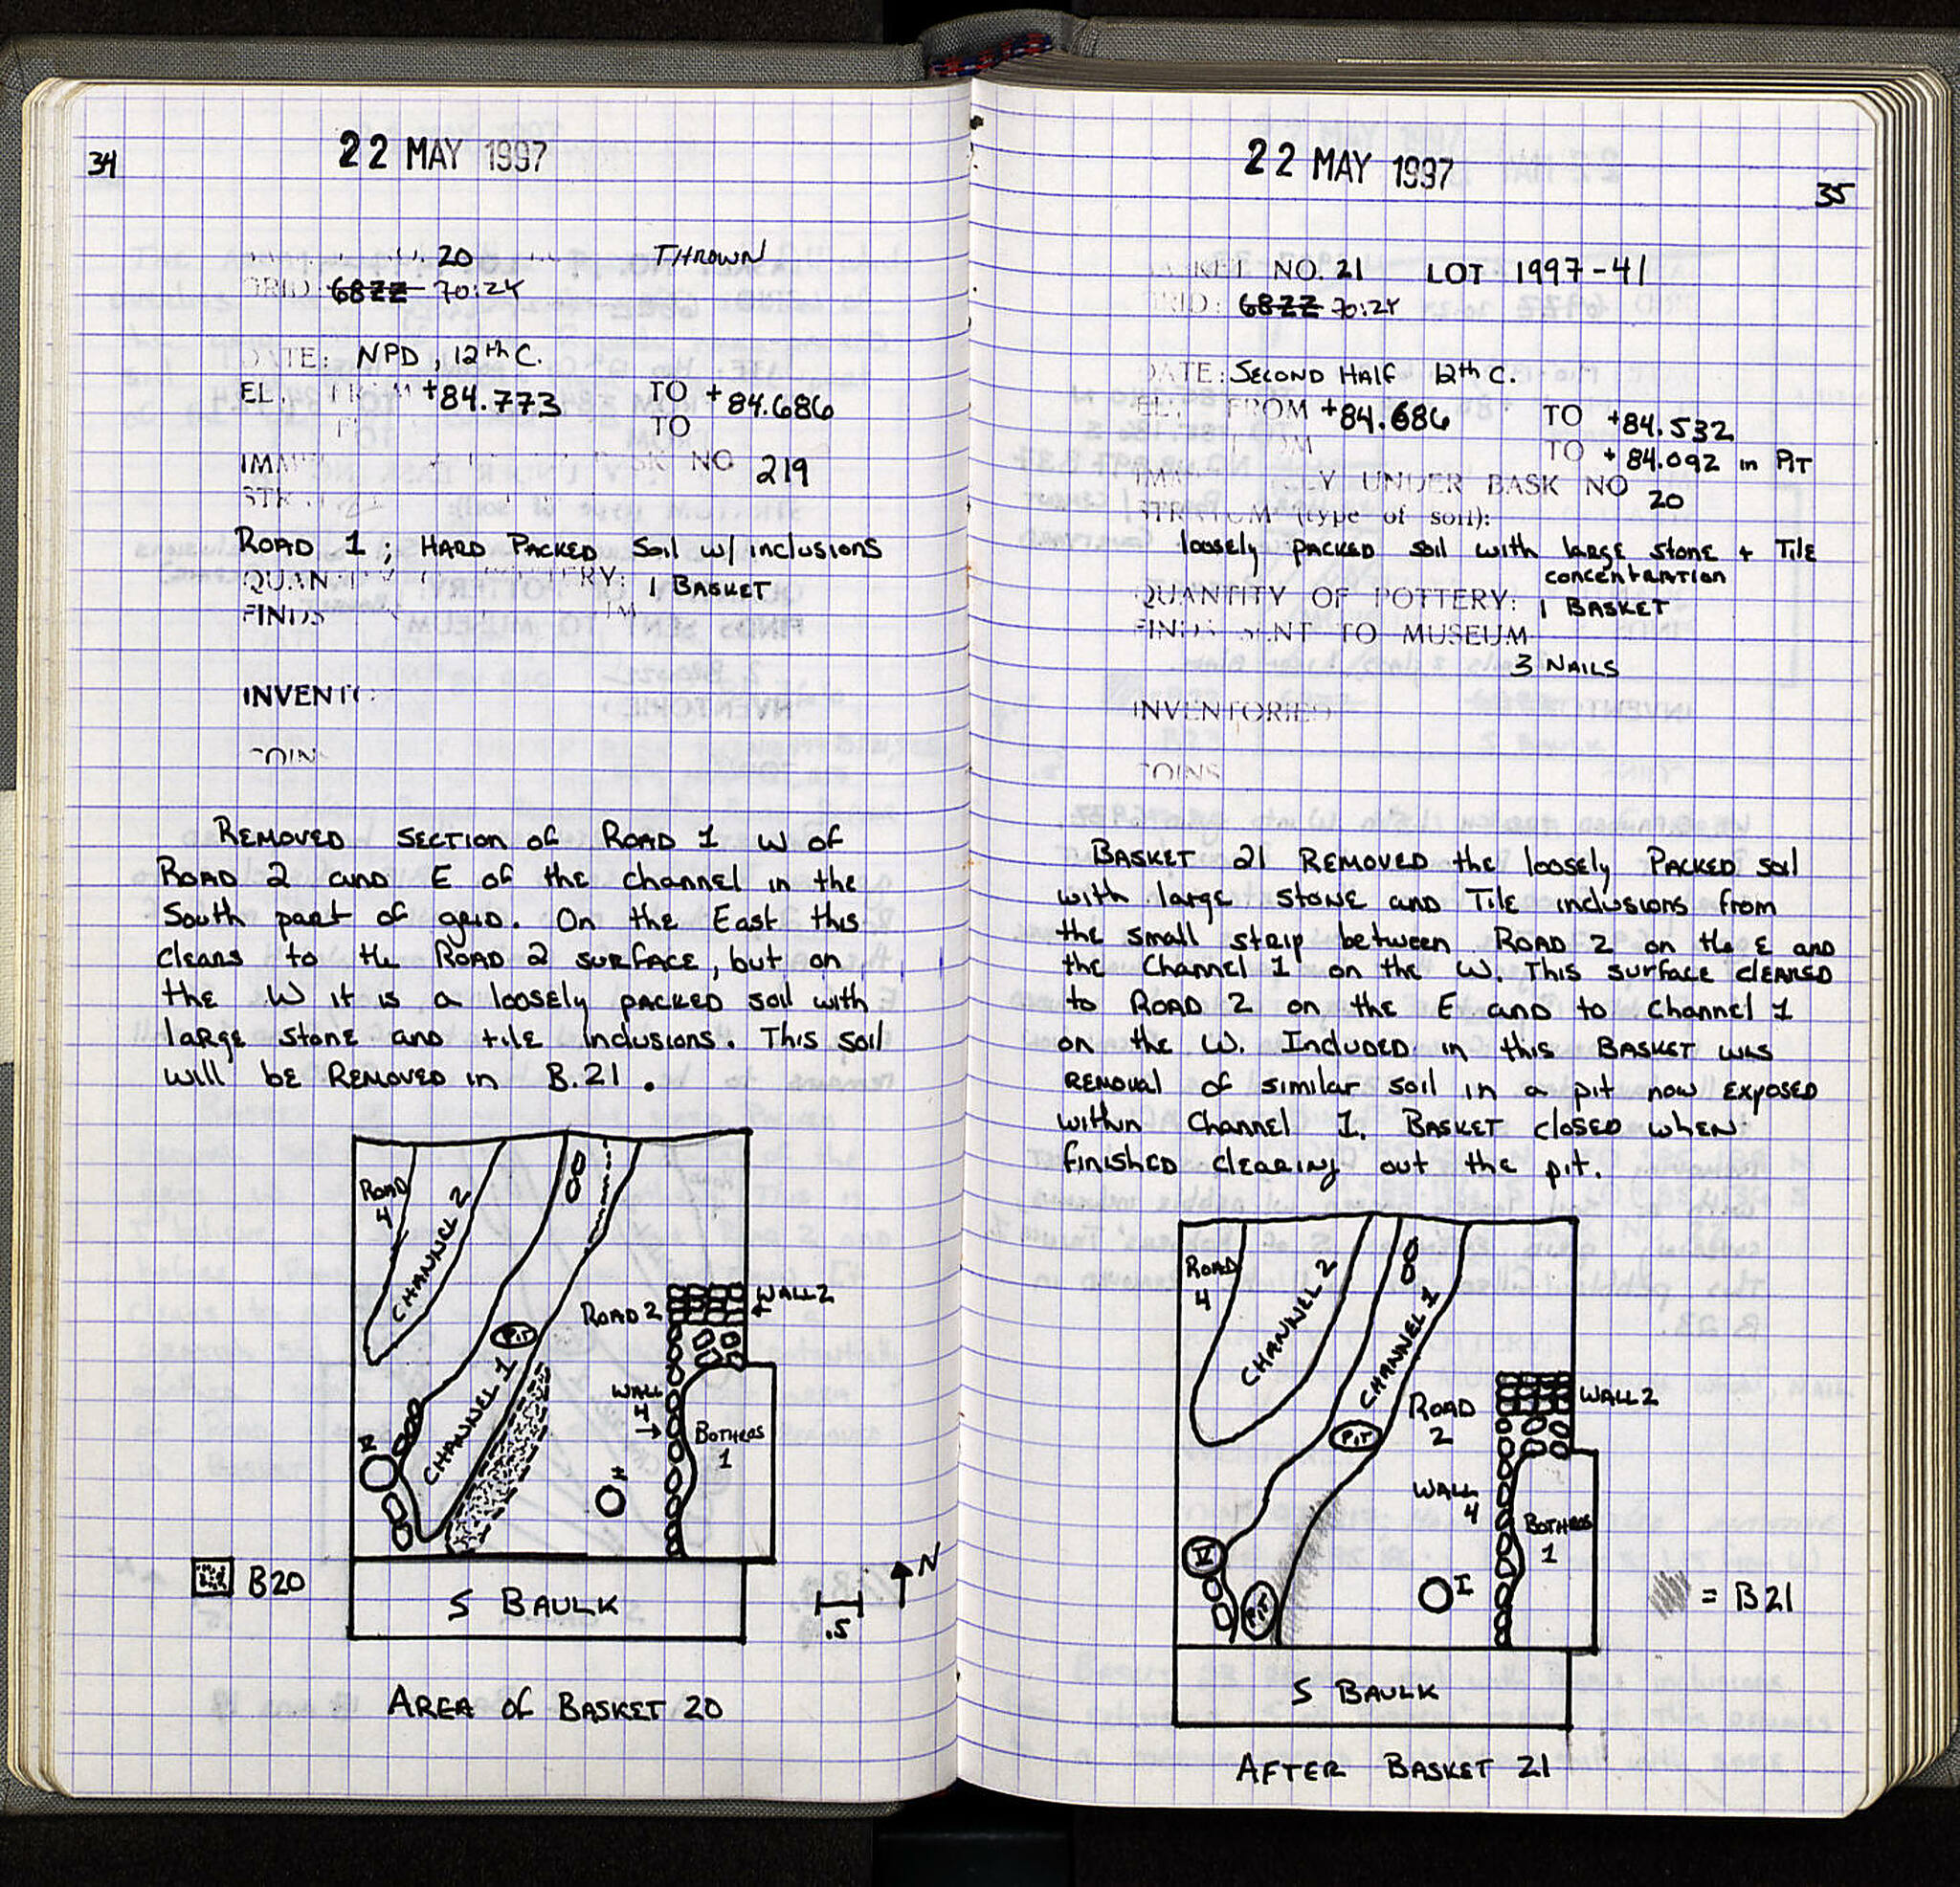 34
22 MAY 1997
20 THROWN
GRID 68ZZ 70:ZY
DATE: NPD, 12th C.
EL. FROM +84.773 TO +84.686
TO
NO 219
ROAD 1; HARD PACKED SOIL w/ inclusions
QUAN POTTERY: 1 BASKET
FINDS
INVENT
COINS
REMOVED SECTION of ROAD 1 W of
ROAD 2 and E of the channel in the
South part of grid. On the East this
clears to the ROAD 2 surface, but on
the W it is a loosely packed soil with
large stone and tile inclusions. This soil
will be REMOVED in B.21.
ROAD 4
CHANNEL 2
ROAD 2
WALL 2
PIT
CHANNEL 1
WALL 4
BOTHROS 1
V
I
B20
S BAULK
.5
N
AREA of BASKET 20
35
22 MAY 1997
BASKET NO. 21 LOT 1997-41
GRID: 68ZZ 70:ZY
DATE: SECOND HALF 12th C.
EL. FROM +84.686 TO +84.532
TO +84.092 in PIT
UNDER BASK NO 20
STRATUM (type of soil):
loosely packed soil with large stone + Tile
concentration
QUANTITY OF POTTERY: 1 BASKET
FINDS SENT TO MUSEUM
3 NAILS
INVENTORIED
COINS
BASKET 21 REMOVED the loosely PACKED soil
with large stone and Tile inclusions from
the small strip between ROAD 2 on the E and
the Channel 1 on the W. This surface cleared
to ROAD 2 on the E and to Channel 1
on the W. Included in this BASKET was
REMOVAL of similar soil in a pit now EXPOSED
within Channel 1. BASKET closed when
finished clearing out the pit.
ROAD 4
CHANNEL 2
CHANNEL 1
PIT
ROAD 2
WALL 2
WALL 4
BOTHROS 1
V
PIT
I
= B21
S BAULK
AFTER BASKET 21